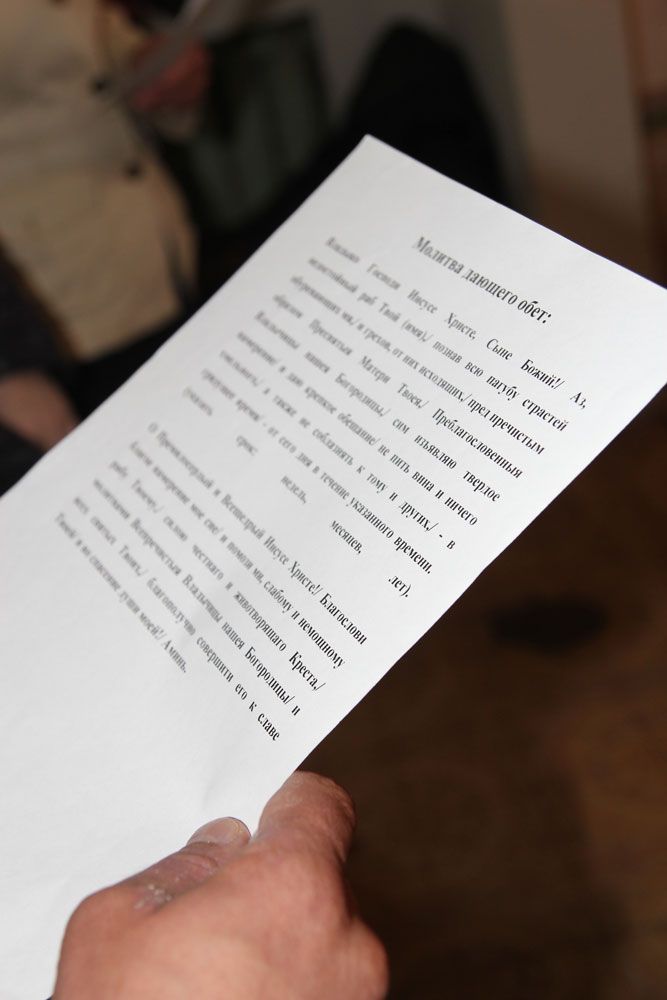 Молитва дающего обет:
Владыко Господи Иисусе Христе, Сыне Божий!/ Аз,
недостойный раб Твой (имя)/ познав всю пагубу страстей
обуревающих мя,/ и грехов, от них исходящих,/ пред пречистым
образом Пресвятыя Матери Твоея,/ Преблагословенныя
Владычицы нашея Богородицы,/ сим изъявляю твердое
намерение/ и даю крепкое обещание/ не пить вина и ничего
хмельнаго,/ а также не соблазнять к тому и других,/ - в
грядущее время/ - от сего дня в течение указанного времени.
(указать срок: недель, месяцев, лет).
О Премилосердый и Всещедрый Иисусе Христе!/ Благослови
благое намерение мое сие/ и помози ми, слабому и немощному
рабу Твоему,/ силою честнаго и животворящаго Креста,/
молитвами Всепречистыя Владычицы нашея Богородицы/ и
всех святых Твоих,/ благополучно совершити его к славе
Твоей и во спасение души моей!/ Аминь.